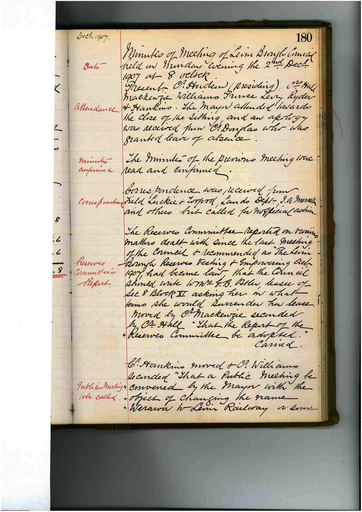 Dec 2. 1907.
180
Minutes of Meeting of Levin Borough Council
held on Monday Evening the 2nd Decr
1907 at 8 oclock
Date
Present Cr Hudson (presiding) Crs Hall
Mackenzie Williams Prouse Levy Ryder
& Hankins. The Mayor attended towards
the close of the sitting and an apology
was received from Cr Douglas who was
granted leave of absence.
Attendance
The Minutes of the previous Meeting were
read and confirmed
Minutes
confirmed
Correspondence was received from
Field Luckie & Toogood, Lands Dept,
and others but called for no special action.
Correspondence
The Reserves Committee reported on various
matters dealt with since the last Meeting
of the Council & recommended as the Levin
Borough Reserves Vesting & Empowering Act
1907 had became law, that the Council
should write to Mrs Lessee of
Sec 8 Block XI asking her on what
terms she would surrender her lease
Moved by Cr Mackenzie seconded
by Cr Hall "That the Report of the
Reserves Committee be adopted."
Carried.
Reserves
Committee's
Report
Cr Hankins moved & Cr Williams
seconded "That a Public Meeting be
convened by the Mayor with the
object of changing the name
Weraroa to Levin Railway or some
Public Meeting
to be called